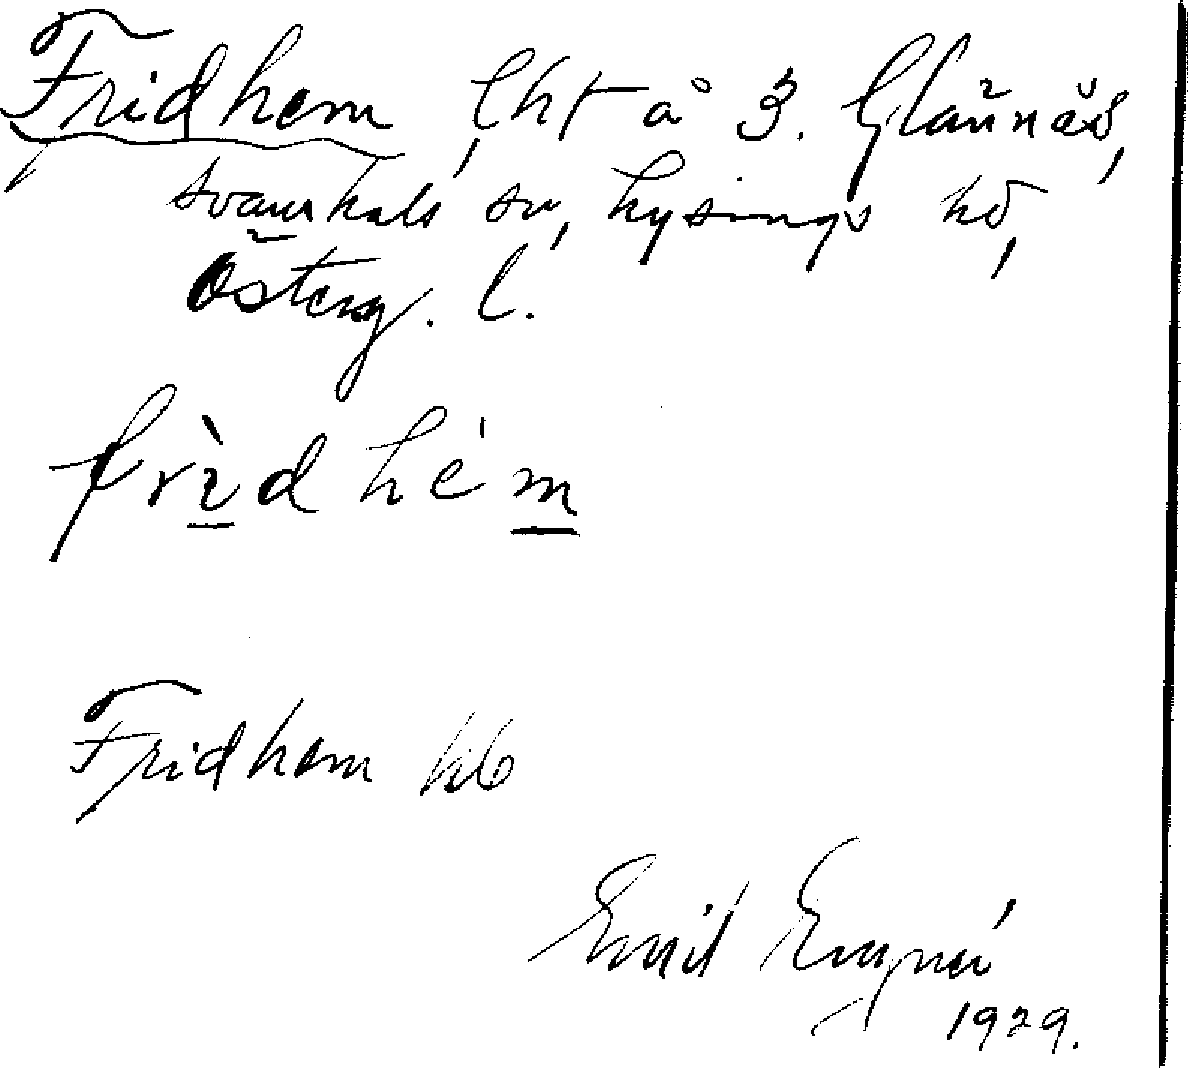 Fridhem, lht å 3. Glänäs,
Svanhals sn, Lysings hd,
Österg. l.
frìdhém
Fridhem hb
Emil
1929.